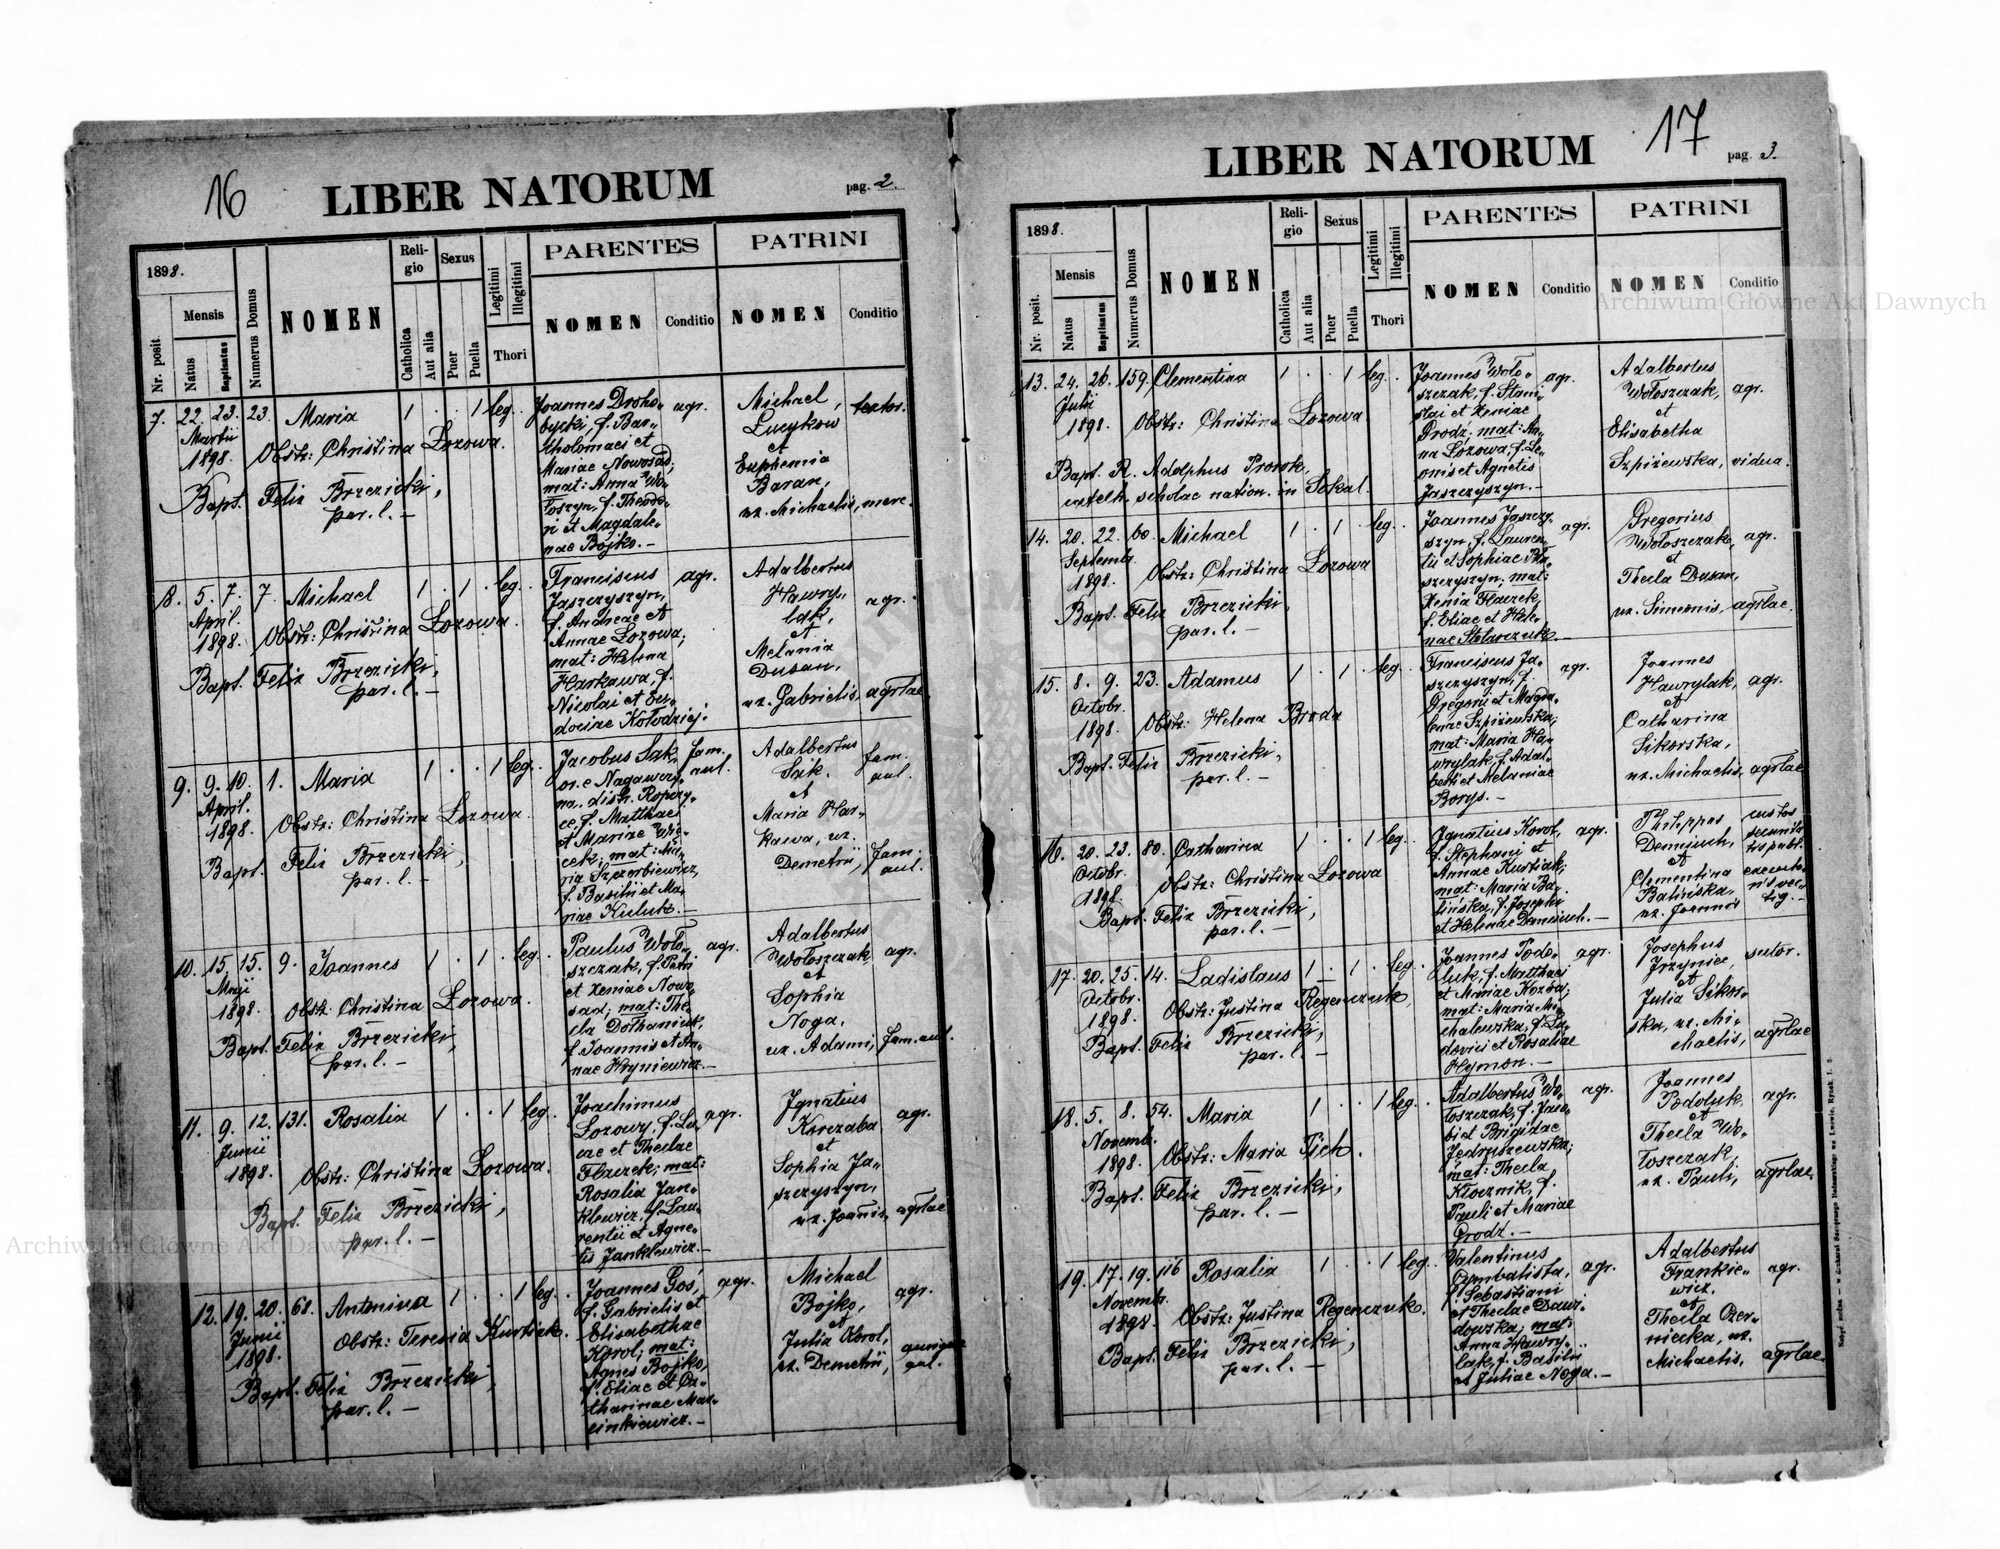 16
LIBER NATORUM
pag. 2.
1898.
Nr. posit.
Mensis
Natus
Baptisatus
Numerus Domus
NOMEN
Religio
Catholica
Aut alia
Sexus
Puer
Puella
Legitimi
Illegitimi
Thori
PARENTES
NOMEN
Conditio
PATRINI
NOMEN
Conditio
7. 22. 23. 23. Maria 1 . . 1 leg.
Martii
1898.
Obstr: Christina Lozowa.
Bapt. Felix Brzezicki,
par. l. –
Joannes Droho-
bycki, f. Bar-
tholomaei et
Mariae Nowosad;
mat: Anna Wo-
łoszyn, f. Theodo-
ri et Magdale-
nae Bojko. –
agr.
Michael
Lucykow
et
Euphemia
Baran,
ux. Michaelis,
textor.
merc.
8. 5. 7. 7. Michael 1 . 1 . leg.
April.
1898.
Obstr: Christina Lozowa.
Bapt. Felix Brzezicki,
par. l. –
Franciscus
Jaszczyszyn,
f. Andreae et
Annae Lozowa;
mat: Helena
Harkawa, f.
Nicolai et Eu-
dociae Kołodziej.
agr.
Adalbertus
Hawry-
lak,
et
Melania
Dusan,
ux. Gabrielis,
agr.
agrlae.
9. 9. 10. 1. Maria 1 . . 1 leg.
April.
1898.
Obstr: Christina Lozowa.
Bapt. Felix Brzezicki,
par. l. –
Jacobus Sak,
or. e Nagawczy-
na, distr. Ropczy-
ce, f. Matthaei
et Mariae Wię-
cek; mat: Ma-
ria Szczerbiewicz,
f. Basilii et Ma-
riae Kuluk. –
fam.
aul.
Adalbertus
Sak.
et
Maria Har-
kawa, ux.
Demetrii,
fam.
aul.
fam.
aul.
10. 15. 15. 9. Joannes 1 . 1 . leg.
Maji
1898.
Obstr: Christina Lozowa.
Bapt. Felix Brzezicki,
par. l. –
Paulus Woło-
szczak, f. Petri
et Xeniae Nowo-
sad; mat: The-
cla Dołhaniuk,
f. Joannis et An-
nae Hryniewicz. –
agr.
Adalbertus
Wołoszczak
et
Sophia
Noga,
ux. Adami,
agr.
fam. aul.
11. 9. 12. 131. Rosalia 1 . . 1 leg.
Junii
1898.
Obstr: Christina Lozowa.
Bapt. Felix Brzezicki,
par. l. –
Joachimus
Lozowy, f. Lu-
cae et Theclae
Flaczek; mat:
Rosalia Jan-
klewicz, f. Lau-
rentii et Agne-
tis Janklewicz. –
agr.
Ignatius
Korczaba
et
Sophia Ja-
szczyszyn,
ux. Joannis,
agr.
agrlae
12. 19. 20. 68. Antonina 1 . . 1 leg.
Junii
1898.
Obstr: Teresia Kurtiak.
Bapt. Felix Brzezicki,
par. l. –
Joannes Goś,
f. Gabrielis et
Elisabethae
Korol; mat:
Agnes Bojko,
f. Eliae et Ca-
tharinae Mar-
cinkiewicz. –
agr.
Michael
Bojko,
et
Julia Korol,
ux. Demetrii,
agr.
aul.
17
LIBER NATORUM
pag. 3.
1898.
Nr. posit.
Mensis
Natus
Baptisatus
Numerus Domus
NOMEN
Religio
Catholica
Aut alia
Sexus
Puer
Puella
Legitimi
Illegitimi
Thori
PARENTES
NOMEN
Conditio
PATRINI
NOMEN
Conditio
13. 24. 26. 159. Clementina 1 . . 1 leg.
Julii
1898.
Obstr: Christina Lozowa.
Bapt. R. Adolphus Prorok,
catech. scholae nation. in Sokal.
Joannes Woło-
szczak, f. Stani-
slai et Xeniae
Grodz; mat: An-
na Lozowa, f. Le-
onis et Agnetis
Jaszczyszyn. –
agr.
Adalbertus
Wołoszczak,
et
Elisabetha
Szpiżewska,
agr.
vidua.
14. 20. 22. 60. Michael 1 . 1 . leg.
Septembr.
1898.
Obstr: Christina Lozowa
Bapt. Felix Brzezicki,
par. l. –
Joannes Jaszczy-
szyn, f. Lauren-
tii et Sophiae
szczyszyn; mat:
Xenia Flaczek,
f. Eliae et Hele-
nae Stolarczuk. –
agr.
Gregorius
Wołoszczak,
et
Thecla Dusan,
ux. Simeonis,
agr.
agrlae.
15. 8. 9. 23. Adamus 1 . 1 . leg.
Octobr.
1898.
Obstr: Helena Broda
Bapt. Felix Brzezicki,
par. l. –
Franciscus Ja-
szczyszyn, f.
Gregorii et Magda-
lenae Szpiżewska;
mat: Maria Ha-
wrylak, f. Adal-
berti et Melaniae
Borys. –
agr.
Joannes
Hawrylak,
et
Catharina
Sikorska,
ux. Michaelis,
agr.
agrlae
16. 20. 23. 80. Catharina 1 . . 1 leg.
Octobr.
1898.
Obstr: Christina Lozowa
Bapt. Felix Brzezicki,
par. l. –
Ignatius Korol,
f. Stephani et
Annae Kurtiak;
mat: Maria Ba-
lińska, f. Josephi
et Helenae Demejuch. –
agr.
Philippus
Demejuch,
et
Clementina
Balińska,
ux. Joannis
custos
securita-
tis publ.
executo-
ris vec-
tig. –
17. 20. 25. 14. Ladislaus 1 . 1 . leg.
Octobr.
1898.
Obstr: Justina Regenczuk,
Bapt. Felix Brzezicki,
par. l. –
Joannes Podo-
luk, f. Matthaei
et Mariae Kozba;
mat: Maria Mi-
chalewska, f. La-
dovici et Rosaliae
Hymon. –
agr.
Josephus
Jrzyniec
et
Julia Sikor-
ska, ux. Mi-
chaelis,
sutor.
agrlae
18. 5. 8. 54. Maria 1 . . 1 leg.
Novemb.
1898.
Obstr: Maria Fich.
Bapt. Felix Brzezicki,
par. l. –
Adalbertus Wo-
łoszczak, f. Jaco-
bi et Brigidae
Jędruszewska;
mat: Thecla
Kłocznik, f.
Pauli et Mariae
Grodz. –
agr.
Joannes
Podoluk,
et
Thecla Wo-
łoszczak,
ux. Pauli,
agr.
agrlae.
19. 17. 19. 116 Rosalia 1 . . 1 leg.
Novembr.
1898.
Obstr: Justina Regenczuk.
Bapt. Felix Brzezicki,
par. l. –
Valentinus
Cymbalista,
f. Sebastiani
et Theclae Dawi-
dowska; mat:
Anna Hawry-
lak, f. Basilii
et Juliae Noga. –
agr.
Adalbertus
Frankie-
wicz,
et
Thecla Czer-
niecka, ux.
Michaelis,
agr.
agrlae.
Archiwum Główne Akt Dawnych
Archiwum Główne Akt Dawnych